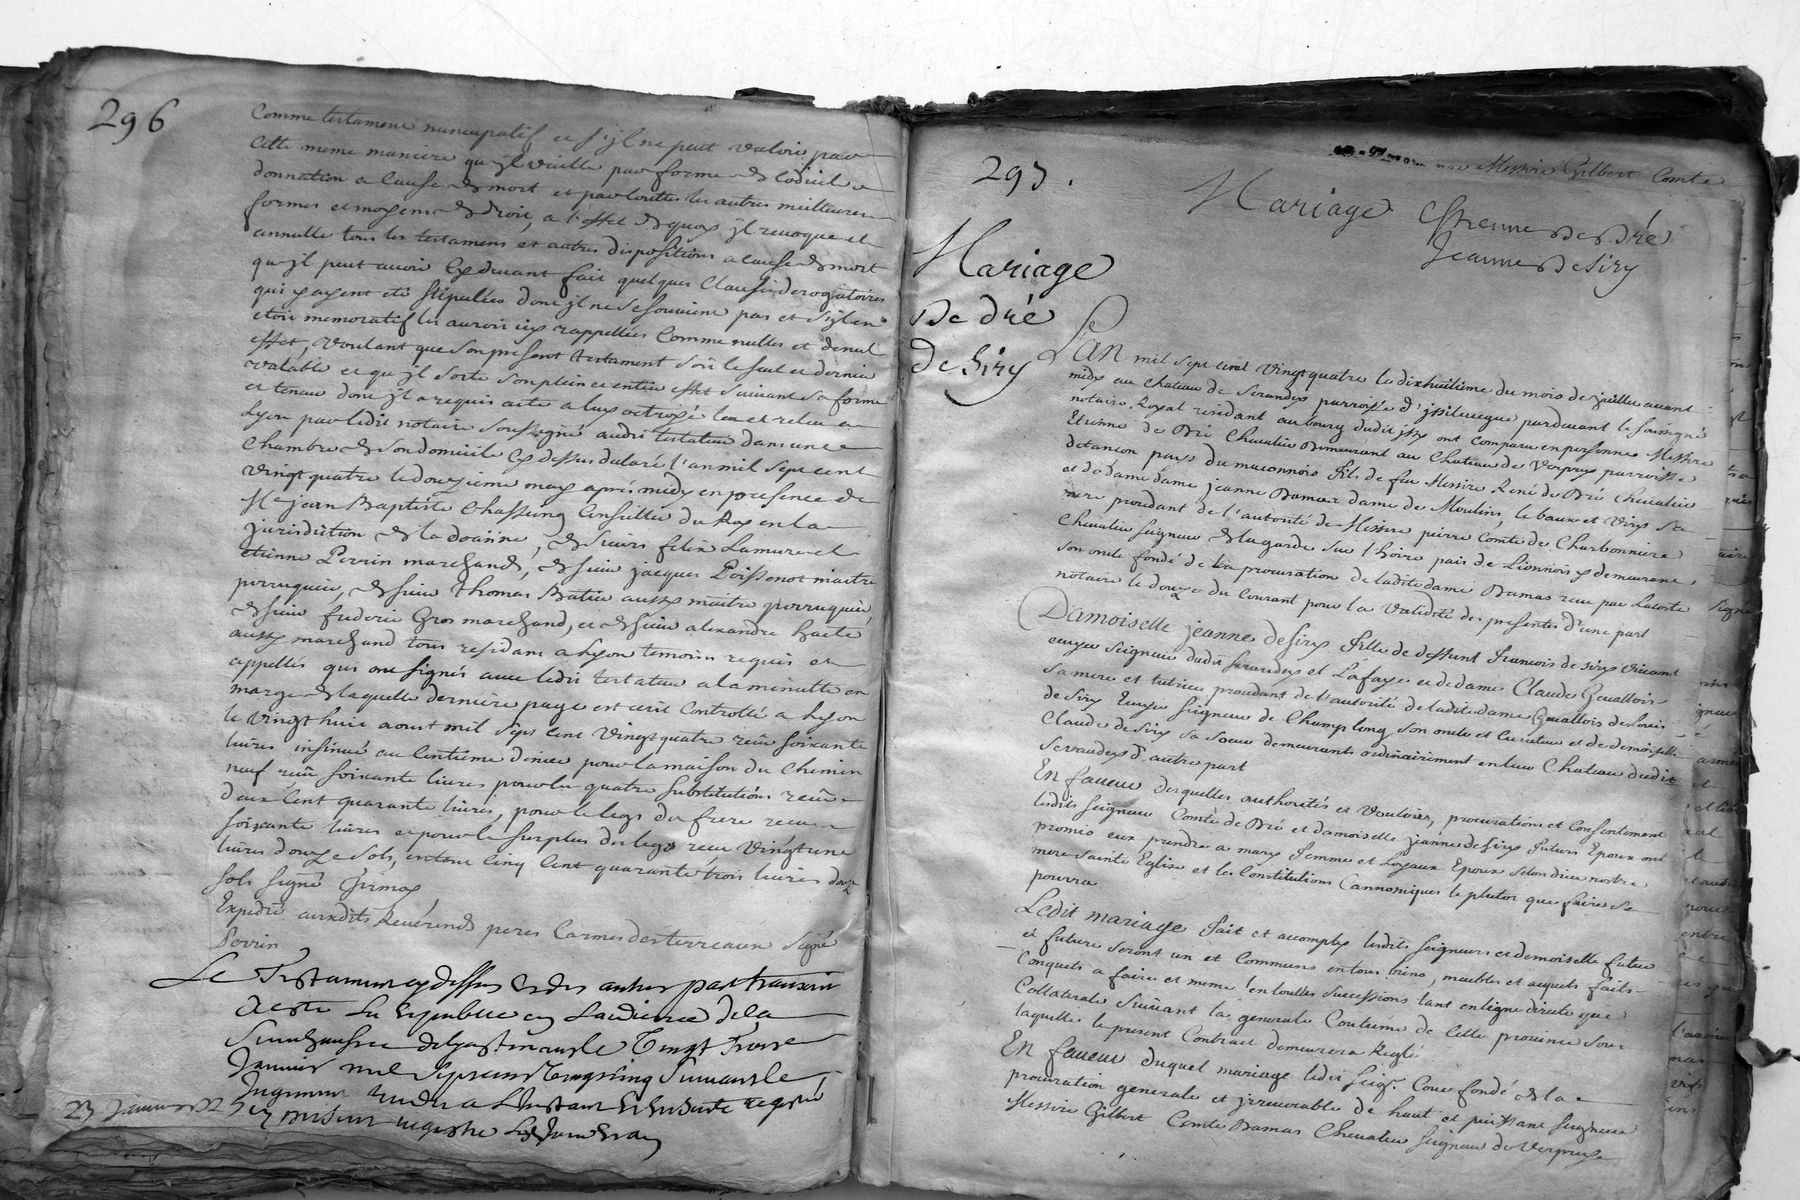 296
Comme testament nuncupatif et s'il ne peut valoir par
cette meme maniere qu'jl vaille par forme de codicile
donnation a cause de mort et par touttes les autres meilleures
formes et moyens de droit, a l'effet de quoy jl revoque et
annulle tous les testamens et autres dispositions a cause de mort
qu'jl peut avoir cy devant fait quelques clauses derogatoires
qui y ayent eté stipulées dont jl ne se souvient pas et s'jl en
etoit memoratif les auroit icy rappellées comme nulles et de nul
effet, voulant que son present testament soit le seul et dernier
valable et qu'jl sorte son plein et entier effet suivant sa forme
et teneur dont jl a requis acte a luy octroyé leu et releu a
Lyon par ledit notaire soussigné audit testateur dans une
chambre de son domicile cy dessus declaré l'an mil sept cent
vingt quatre le douzieme may aprés midy en presence de
Me jean Baptiste Chasseing Conseiller du Roy en la
jurisdiction de la doüanne, de sieurs felix Lamure et
etienne Perrin marchands, de sieur jacques Poissenot maitre
perruquier, de sieur thomas Batier aussy maitre perruquier,
de sieur frederic Gros marchand, et de sieur alexandre
aussy marchand tous residans a Lyon temoins requis et
appellés qui ont signés avec ledit testateur a la minutte en
marge de laquelle derniere page est ecrit Controllé a Lyon
le vingt huit aoust mil sept cent vingt quatre reçû soixante
livres insinué au centieme denier pour la maison du chemin
neuf reçû soixante livres pour les quatre substitutions reçû
deux cent quarante livres, pour le legs du frere receu
soixante livres et pour le surplus des legs receu vingt une
livres douze sols, en tout cinq cent quarante trois livres douze
sols signé
Expedié auxdits Reverends peres Carmes des terreaux signé
Perrin
Le Testament cy dessus et des autres parts transcrit
a esté Lu et publié en L'audience de la
Senechaussée de Lyon Vingt Trois
Janvier mil Sept cent vingt cinq Suivant le
Jugement rendu a L'instant et ensuite registré
23 Janvier 1725
297.
Mariage
De dré
de Siry
Messire Gilbert Comte
Mariage Estienne De Dré
Jeanne De Siry
L'An mil sept cent vingt quatre le dixhuitieme du mois de juillet avant
midy au chateau de Serandey parroisse d' pardevant le soussigné
notaire Royal residant au bourg dudit ont comparu en personnes Messire
Etienne de Dré Chevalier demeurant au Chateau de Verprey parroisse
de tancon pays du maconnois fils de feu Messire René de Dré Chevalier
et de dame dame jeanne Damas dame de Moulins, le baux et Viry sa
mere procedant de l'autorité de Messire pierre Comte de Charbonniere
Chevalier seigneur de la garde sur l'hoire pais de Lionnois y demeurant
son oncle fondé de la procuration de ladite dame Damas receu par Lacoste
notaire le douze du Courant pour la validité des presentes d'une part
Damoiselle jeanne de Siry fille de deffunt francois de siry vivant
ecuyer seigneur dudit Serandey et Lafaye et de dame Claude Gevallois
sa mere et tutrice procedant de l'autorité de ladite dame Gevallois de Louis
de Siry Ecuyer seigneur de Champlong son oncle et Curateur et de demoiselle
Claude de Siry sa soeur demeurants ordinairement en leur Chateau dudit
Serandey d'autre part
En faveur desquelles authorités et vouloirs, procurations et Consentement
lesdits seigneur Comte de Dré et damoiselle jeanne de Siry futurs Epoux ont
promis eux prendre a mary femme et Loyaux Epoux selon dieu nostre
mere sainte Eglise et les Constitutions Cannoniques le plutot que faire se
pourra
Ledit mariage fait et accomply lesdits seigneurs et demoiselle futur
et future seront un et Communs en tous biens, meubles et acquets faits
Conquets a faire et meme en touttes successions tant en ligne directe que
Collaterale suivant la generale Coutume de cette province sous
laquelle le present Contract demeurera Reglé
En faveur duquel mariage ledit seigr. Core fondé de la
procuration generale et jrrevocable de haut et puissant seigneur
Messire Gilbert Comte Damas Chevalier seigneur de Verpreys